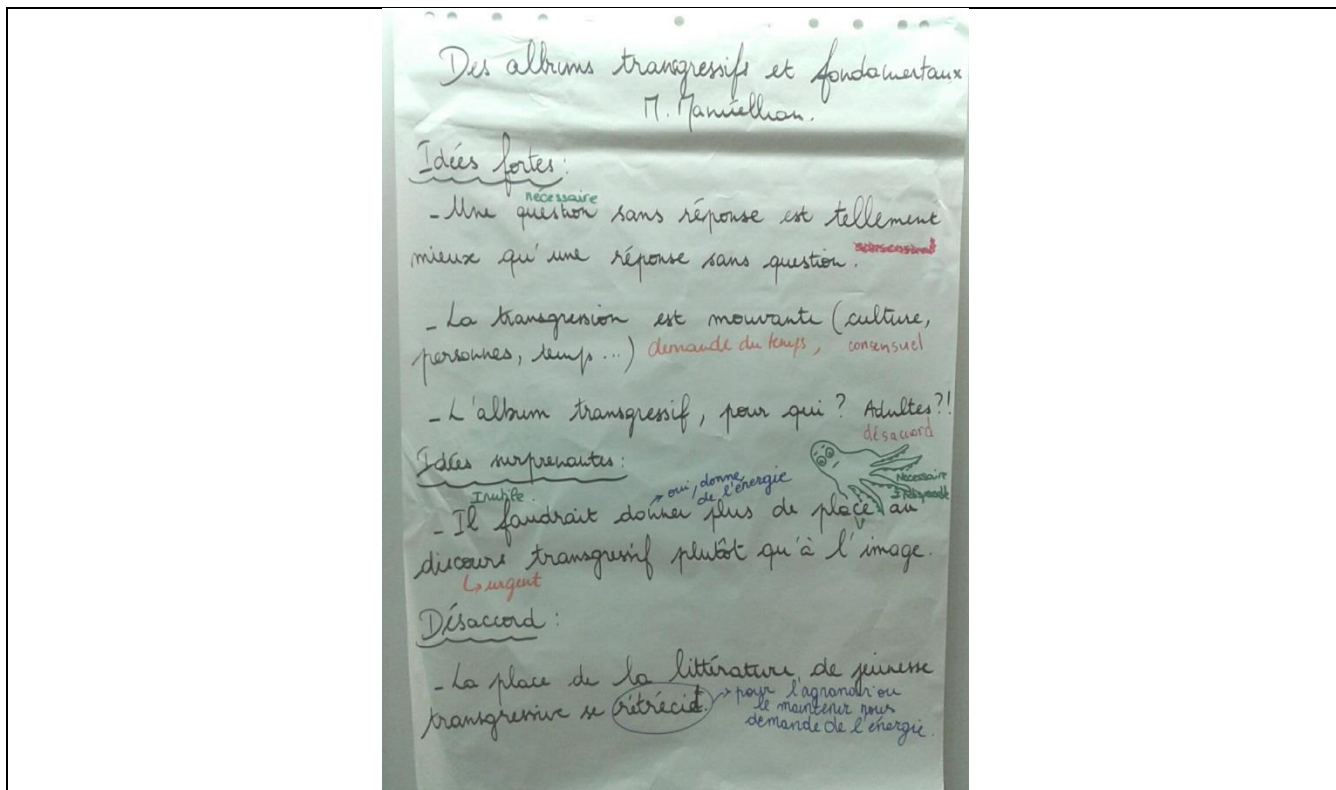 Des albums transgressifs et fondamentaux
M. Manuélhan.
Idées fortes :
nécessaire
- Une question sans réponse est tellement
mieux qu'une réponse sans question.
- La transgression est mouvante (culture,
personnes, temps...) demande du temps, consensuel
- L'album transgressif, pour qui ? Adultes ?!
désaccord
Idées surprenantes :
Inutile.
oui, donne
de l'énergie
Nécessaire
- Il faudrait donner plus de place au
discours transgressif plutôt qu'à l'image.
↳ urgent
Désaccord :
- La place de la littérature de jeunesse
transgressive se rétrécit. → pour l'agrandir ou
le maintenir nous
demande de l'énergie.